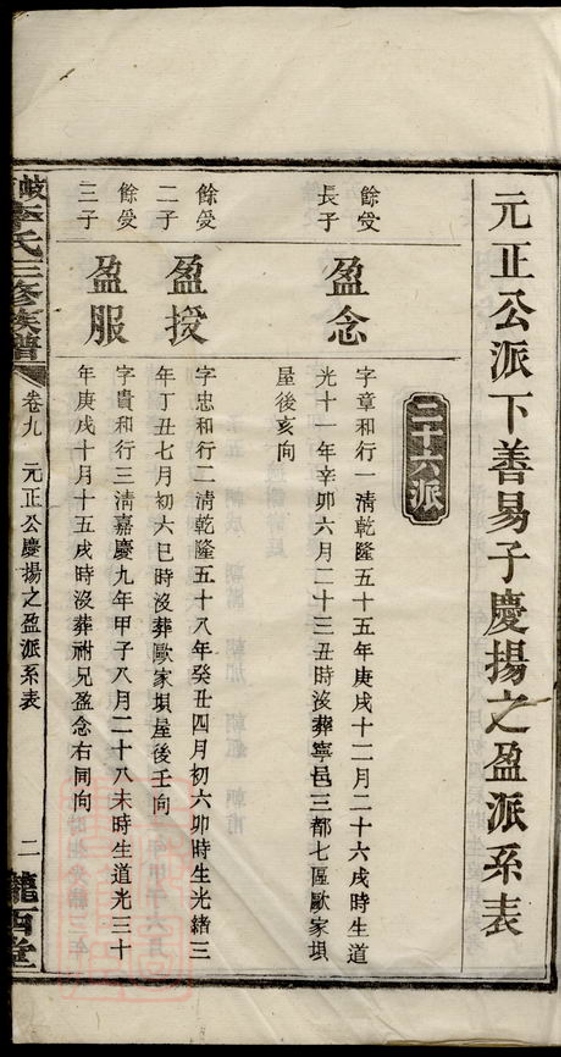 元正公派下善易子慶揚之盈派系表
二十六派
餘受
長子
盈念
字章和行一淸乾隆五十五年庚戌十二月二十六戌時生道
光十一年辛卯六月二十三丑時沒葬寧邑三都七區歐家垻
屋後亥向
餘受
二子
盈授
字忠和行二淸乾隆五十八年癸丑四月初六卯時生光緒三
年丁丑七月初六巳時沒葬歐家垻屋後壬向
餘受
三子
盈服
字貴和行三淸嘉慶九年甲子八月二十八未時生道光三十
年庚戌十月十五戌時沒葬祔兄盈念右同向
李氏三修族譜
卷九
元正公慶揚之盈派系表
二
隴西堂